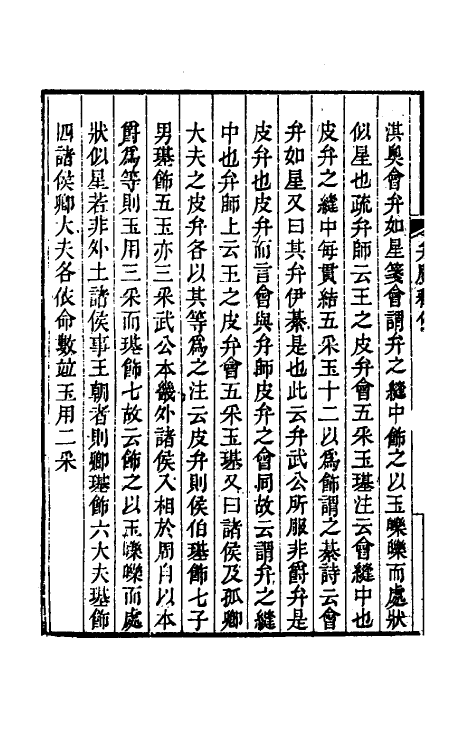 淇奧會弁如星箋會謂弁之縫中飾之以玉皪皪而處狀
似星也疏弁師云王之皮弁會五采玉璂注云會縫中也
皮弁之縫中每貫結五采玉十二以爲飾謂之綦詩云會
弁如星又曰其弁伊綦是也此云弁武公所服非爵弁是
皮弁也皮弁而言會與弁師皮弁之會同故云謂弁之縫
中也弁師上云王之皮弁會五采玉璂又曰諸侯及孤卿
大夫之皮弁各以其等爲之注云皮弁則侯伯璂飾七子
男璂飾五玉亦三采武公本畿外諸侯入相於周自以本
爵爲等則玉用三采而璂飾七故云飾之以玉皪皪而處
狀似星若非外土諸侯事王朝者則卿璂飾六大夫璂飾
四諸侯卿大夫各依命數並玉用二采